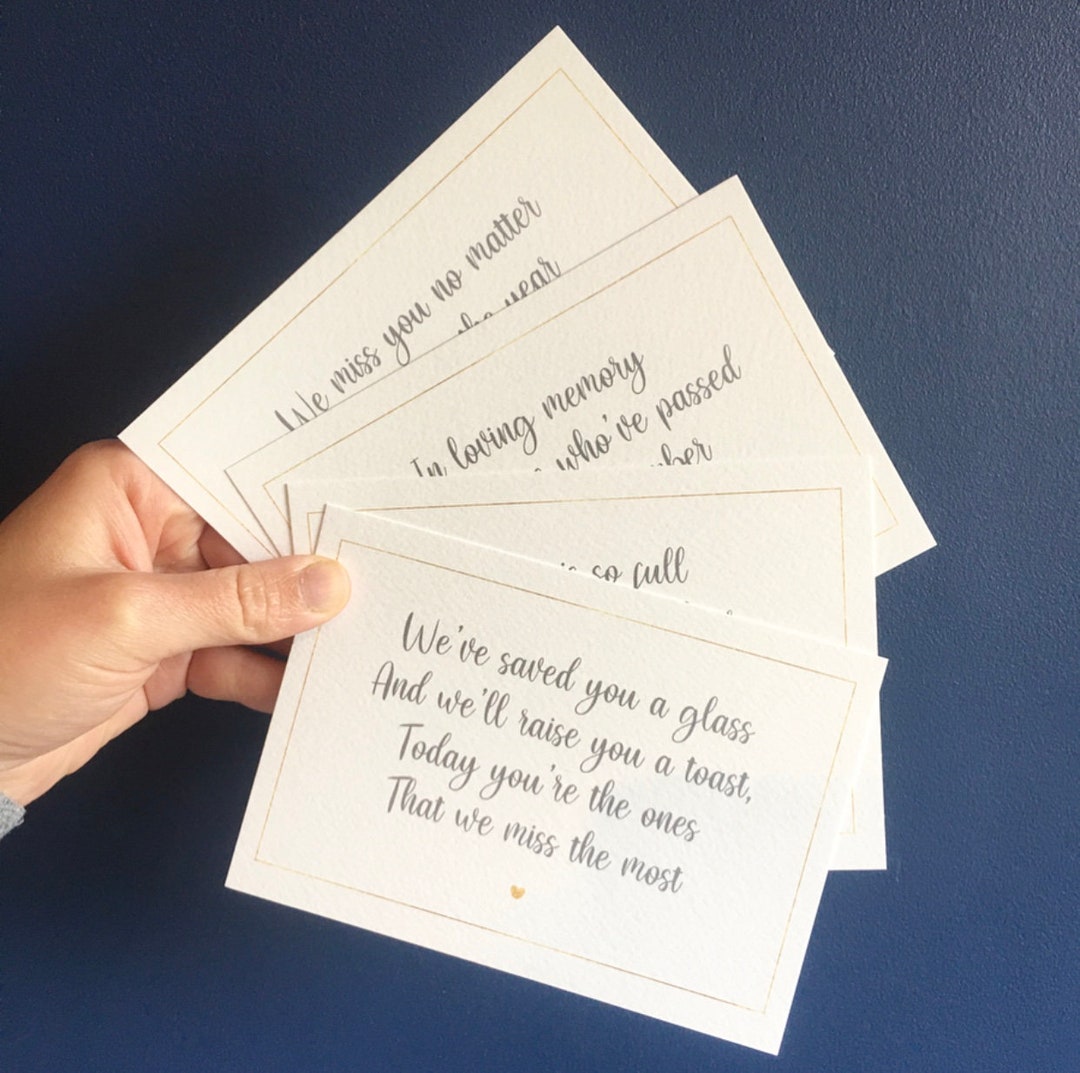 We miss you no matter
year
In loving memory
who've passed
so full
We've saved you a glass
And we'll raise you a toast,
Today you're the ones
That we miss the most